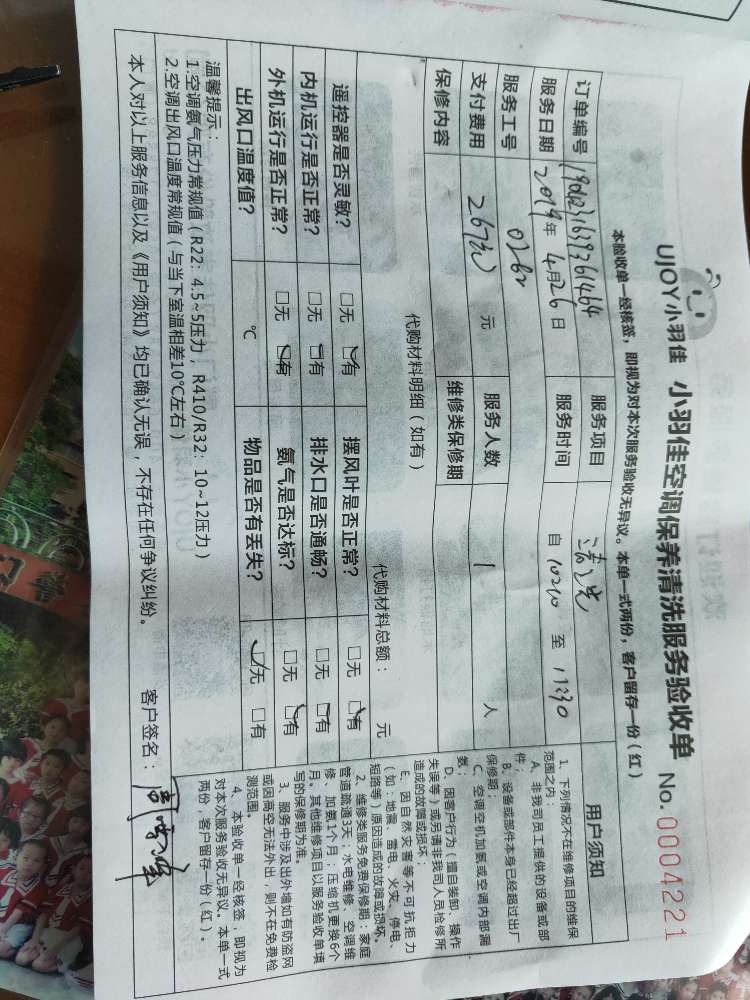 UJOY小羽佳 小羽佳空调保养清洗服务验收单 No.0004221
本验收单一经核签，即视为对本次服务验收无异议。本单一式两份，客户留存一份（红）
订单编号 服务项目 清洗
服务日期 2019年4月26日 服务时间 自 10:20 至 11:30
服务工号 0262
支付费用 267元 元 服务人数 1 人
保修内容 维修类保修期
代购材料明细（如有） 代购材料总额： 元
遥控器是否灵敏？ □无 □有 摆风叶是否正常？ □无 □有
内机运行是否正常？ □无 □有 排水口是否通畅？ □无 □有
外机运行是否正常？ □无 □有 氨气是否达标？ □无 □有
出风口温度值？ ℃ 物品是否有丢失？ □无 □有
温馨提示：
1.空调氨气压力常规值（R22：4.5~5压力，R410/R32：10~12压力）
2.空调出风口温度常规值（与当下室温相差10℃左右）
本人对以上服务信息以及《用户须知》均已确认无误，不存在任何争议纠纷。 客户签名：
用户须知
1、下列情况不在维修项目的维保
范围之内：
A、非我司员工提供的设备或部
件；
B、设备或部件本身已经超过出厂
保修期；
C、空调空机加氨或空调内部漏
氨；
D、因客户行为（擅自装卸、操作
失误等）或另请非我司人员检修所
造成的故障或损坏；
E、因自然灾害等不可抗拒力
（如：地震、雷电、火灾、停电、
短路等）原因造成的故障或损坏。
2、维修类服务免费保修期：家庭
管道疏通3天；水电维修、空调维
修、加氨1个月；压缩机更换6个
月。其他维修项目以服务验收单填
写的保修期为准。
3、服务中涉及出外墙如有防盗网
或因高空无法外出，则不在免费检
测范围。
4、本验收单一经核签，即视为
对本次服务验收无异议。本单一式
两份，客户留存一份（红）。